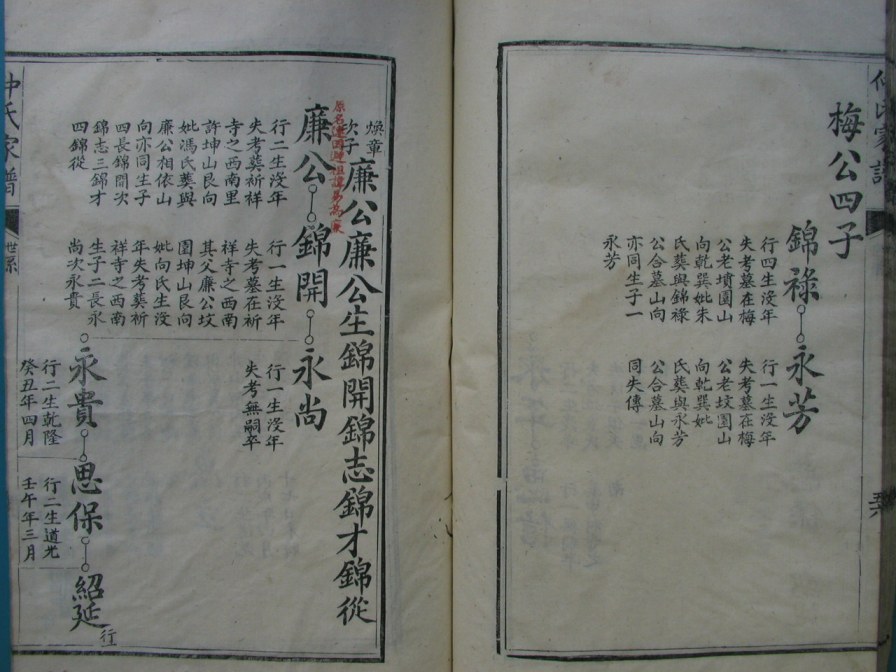 梅公四子
錦祿
行四生沒年
失考墓在梅
公老墳圍山
向乾巽妣朱
氏葬與錦祿
公合墓山向
亦同生子一
永芳
永芳
行一生沒年
失考墓在梅
公老坟圍山
向乾巽妣
氏葬與永芳
公合墓山向
同失傳
煥章
次子
廉公廉公生錦開錦志錦才錦從
廉公
行二生沒年
失考葬祈祥
寺之西南里
許坤山艮向
妣馮氏葬與
廉公相依山
向亦同生子
四長錦開次
錦志三錦才
四錦從
錦開
行一生沒年
失考墓在祈
祥寺之西南
其父廉公坟
圍坤山艮向
妣向氏生沒
年失考葬祈
祥寺之西南
生子二長永
尚次永貴
永尚
行一生沒年
失考無嗣卒
永貴
行二生乾隆
癸丑年四月
思保
行二生道光
壬午年三月
紹延
行
仲氏家譜
世系